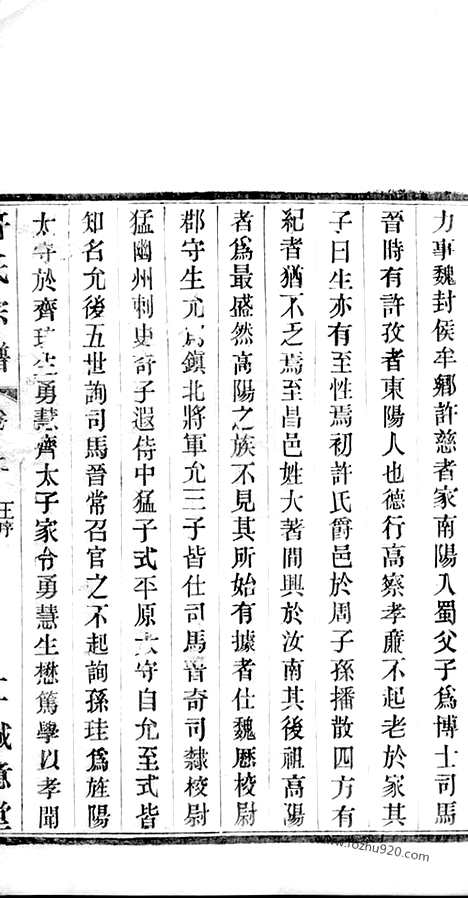 力事魏封侯牟鄉許慈者家南陽入蜀父子爲博士司馬
晉時有許孜者東陽人也德行高察孝廉不起老於家其
子曰生亦有至性焉初許氏爵邑於周子孫播散四方有
紀者猶不乏焉至昌邑姓大著間興於汝南其後祖高陽
者爲最盛然高陽之族不見其所始有據者仕魏歷校尉
郡守生允爲鎮北將軍允三子皆仕司馬晉奇司隸校尉
猛幽州刺史奇子遐侍中猛子式平原太守自允至式皆
知名允後五世詢司馬晉常召官之不起詢孫珪爲旌陽
太守於齊珪生勇慧齊太子家令勇慧生懋篤學以孝聞
許氏宗譜 卷 王序 誠意堂
www.fozhu920.com